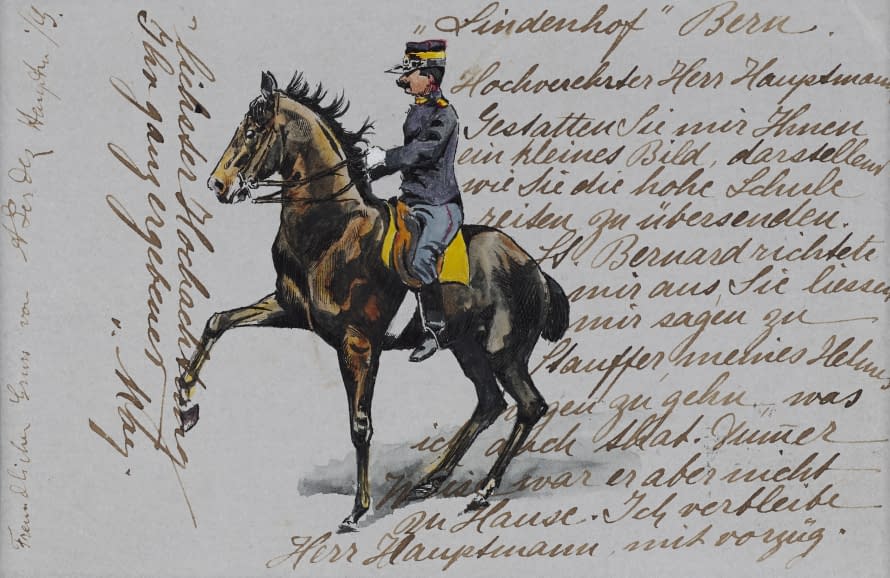 "Lindenhof" Bern.
Hochverehrter Herr Hauptmann
Gestatten Sie mir Ihnen
ein kleines Bild, darstellend
wie Sie die hohe Schule
reiten zu übersenden.
St. Bernard richtete
mir aus, Sie liessen
mir sagen zu
Stauffer meines Helmes
wegen zu gehn was
ich auch that.
war er aber nicht
zu Hause. Ich verbleibe
Herr Hauptmann, mit vorzüg-
lichster Hochachtung
Ihr ganz ergebener
v. May.
Freundlicher Gruss von